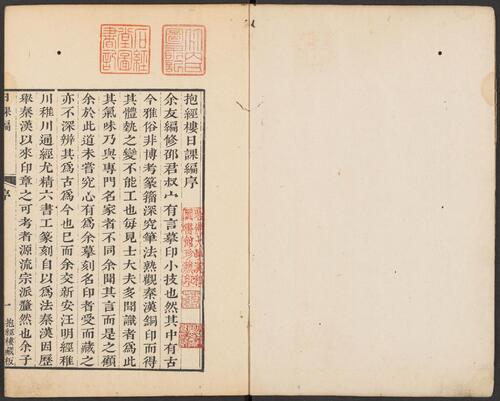 抱經樓日課編序
余友編修邵君叔宀有言摹印小技也然其中有古
今雅俗非博考篆籀深究筆法熟觀秦漢銅印而得
其體埶之變不能工也每見士大夫多聞識者爲此
其氣味乃與專門名家者不同余聞其言而是之顧
余於此道未嘗究心有爲余摹刻名印者受而藏之
亦不深辨其爲古爲今也已而余交新安汪明經稚
川稚川通經尤精六書工篆刻自以爲法秦漢因歷
舉秦漢以來印章之可考者源流宗派釐然也余子
日課編
序
一
抱經樓藏板